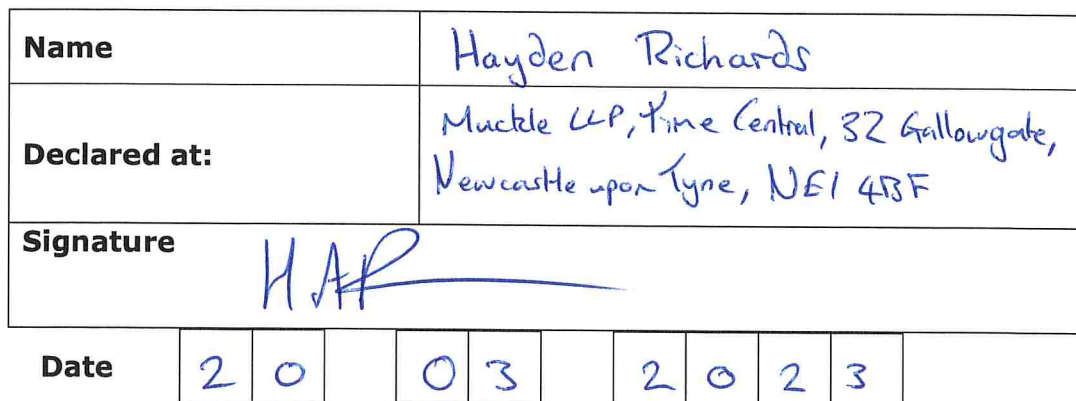 Name Hayden Richards
Declared at: Muckle LLP, Time Central, 32 Gallowgate,
Newcastle upon Tyne, NE1 4BF
Signature HAR
Date 20 03 2023